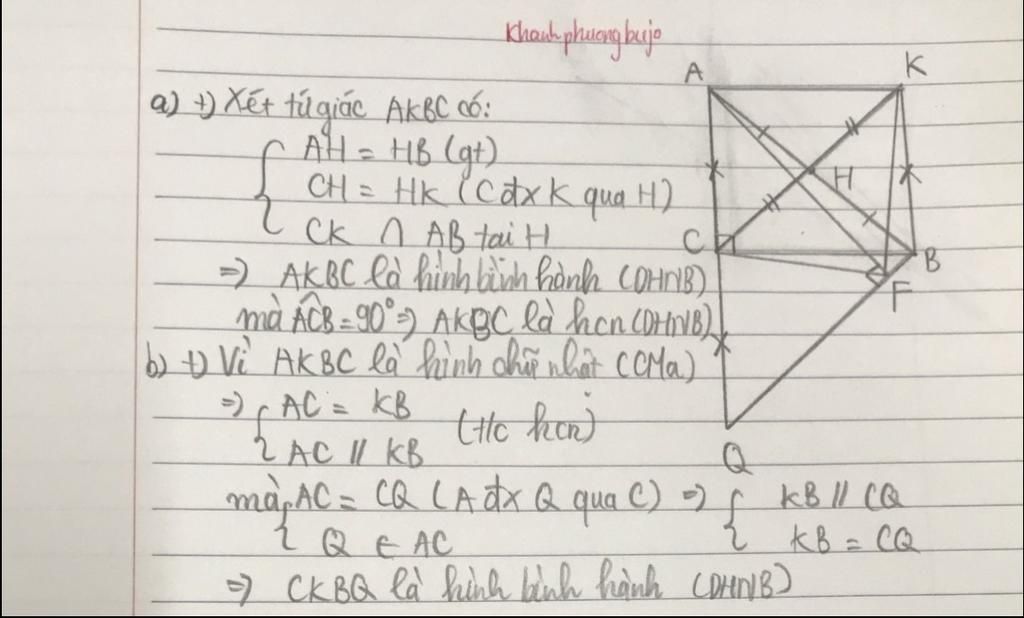 Khanhphuongbujo
a) +) Xét tứ giác AKBC có:
AH = HB (gt)
CH = HK (C đx K qua H)
CK ∩ AB tại H
=) AKBC là hình bình hành (DHNB)
mà ACB = 90° =) AKBC là hcn (DHNB)
b) +) Vì AKBC là hình chữ nhật (CMa)
=) AC = KB
AC // KB (t/c hcn)
mà AC = CQ (A đx Q qua C) =) KB // CQ
Q ∈ AC KB = CQ
=) CKBQ là hình bình hành (DHNB)
A K
H
C B
F
Q